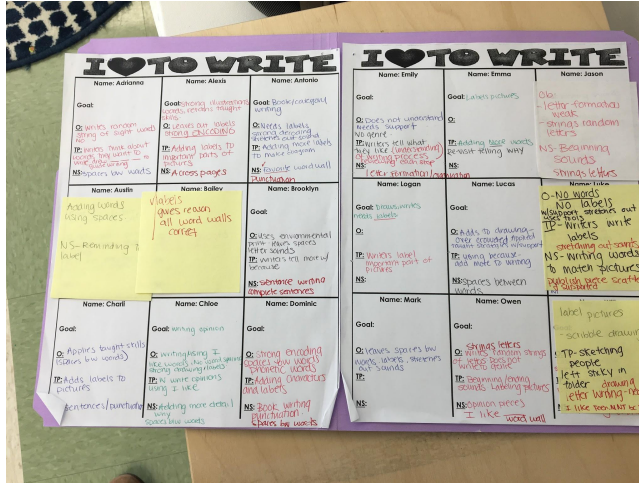 I TO WRITE
Name: Adrianna
O: Writes random
string of sight words
TP: Writers think about
words they want to
NS: spaces b/w words
Name: Alexis
Goal: strong illustrations
O: Leaves out labels
strong ENCODING
TP: Adding labels to
important parts of
pictures
NS: Across pages
Name: Antonio
Goal: Book/category
writing
O: Needs labels
strong decoding
TP: Adding more labels
to make diagram
NS: Favorite word wall
Punctuation
Name: Austin
Adding words
using spaces
NS-Reminding to
label
Name: Bailey
labels
gives reason
all word walls
correct
Name: Brooklyn
Goal:
O: uses environmental
print leaves spaces
letter sounds
TP: Writers tell more w/
because
NS: sentence writing
complete sentences
Name: Charli
Goal:
O: Applies taught skills
(spaces b/w words)
TP: Adds labels to
pictures
sentences/punctuation
Name: Chloe
Goal: Writing opinion
O: Writing using I
like words
strong drawing
TP: write opinions
using I like
NS: Adding more detail/
why
spaces b/w words
Name: Dominic
Goal:
O: strong encoding
spaces b/w words
phonetic words
TP: Adding characters
and labels
NS: Book writing
punctuation
spaces b/w words
I TO WRITE
Name: Emily
Goal:
O: Does not understand
needs support
No genre
TP: Writers tell what
they like (understanding)
of writing process
NS:
letter formation/
Name: Emma
Goal: Labels pictures
O:
TP: Adding words
Re-visit telling why
NS:
Name: Jason
Obs:
- letter formation
weak
- strings random
letters
NS- Beginning
sounds
strings letters
Name: Logan
Goal: Draws, writes
needs labels
O:
TP: Writers label
important part of
pictures
NS:
Name: Lucas
Goal:
O: Adds to drawing-
over crowded
TP: using because-
add more to writing
NS: spaces between
words
Name: Luke
O-No words
No labels
w/support stretches out
TP- Writers write
labels
stretching out sounds
NS-Writing words
to match pictures
publish piece
supported
Name: Mark
Goal:
O: leaves spaces b/w
words, labels, stretches
out sounds
TP:
NS:
Name: Owen
Goal:
strings letters
O: Writes random strings
of letters does not
TP: Beginning/ending
sounds Labeling pictures
NS: Opinion pieces
I like word wall
label pictures
- scribble drawing
TP-sketching
people
left sticky in
folder drawing
letter writing-